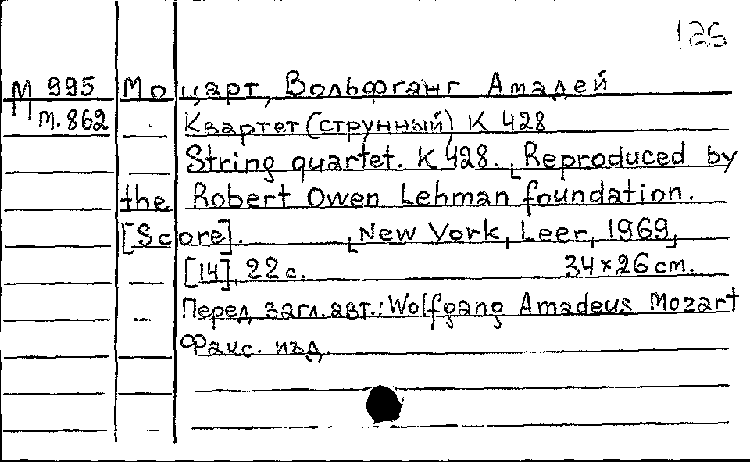 125
М 995 Моцарт, Вольфганг Амадей
м.862 Квартет (струнный) К 428
String quartet. K 428. [Reproduced by
the Robert Owen Lehman foundation.
[Score]. [New York, Leer, 1969]
[14], 22 с. 34×26 cm.
Перед загл. авт.: Wolfgang Amadeus Mozart
Факс. изд.